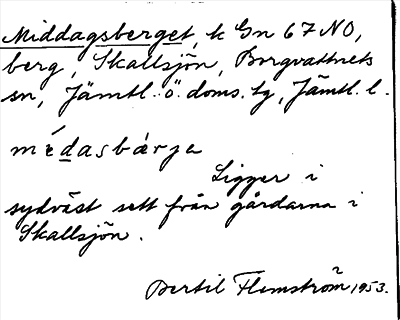 Middagsberget, k Gn 67 NO,
berg, Skallsjön, Borgvattnets
sn, Jämtl. ö. doms. tg, Jämtl. l.
médasbárja
Ligger i
sydväst sett från gårdarna i
Skallsjön.
Bertil Flemström 1953.